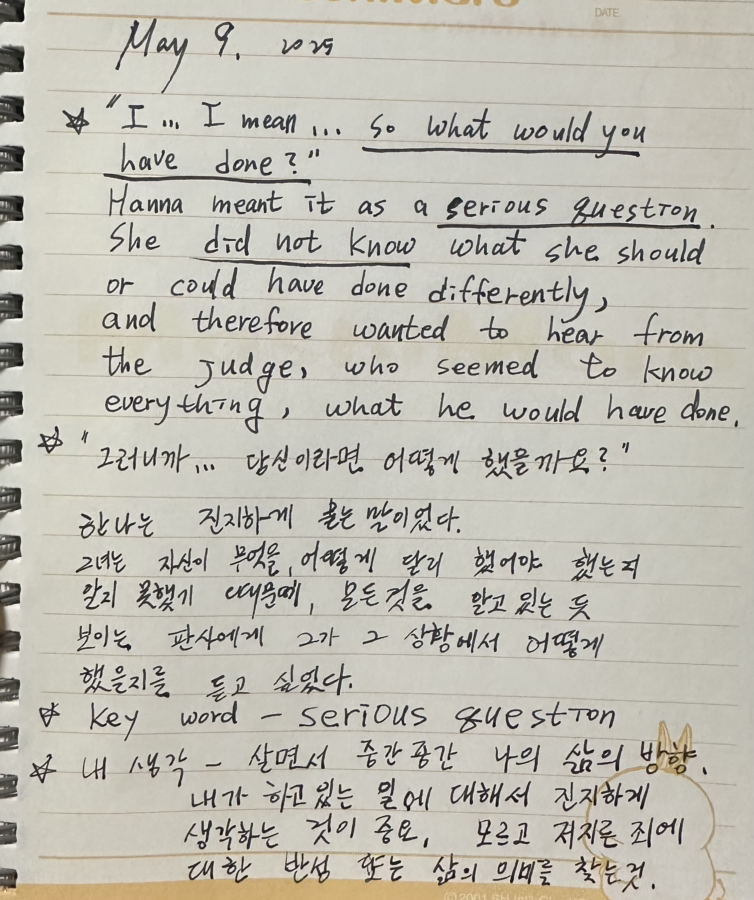 DATE
May 9. 2025
☆ "I ... I mean ... so what would you
have done?"
Hanna meant it as a serious question.
She did not know what she should
or could have done differently,
and therefore wanted to hear from
the judge, who seemed to know
everything, what he would have done.
☆ "그러니까... 당신이라면 어떻게 했을까요?"
한나는 진지하게 묻는 말이었다.
그녀는 자신이 무엇을, 어떻게 달리 했어야 했는지
알지 못했기 때문에, 모든것을 알고 있는 듯
보이는 판사에게 그가 그 상황에서 어떻게
했을지를 듣고 싶었다.
☆ key word - serious question
☆ 내 생각 - 살면서 중간중간 나의 삶의 방향,
내가 하고 있는 일에 대해서 진지하게
생각하는 것이 중요. 모르고 저지른 죄에
대한 반성 또는 삶의 의미를 찾는 것.